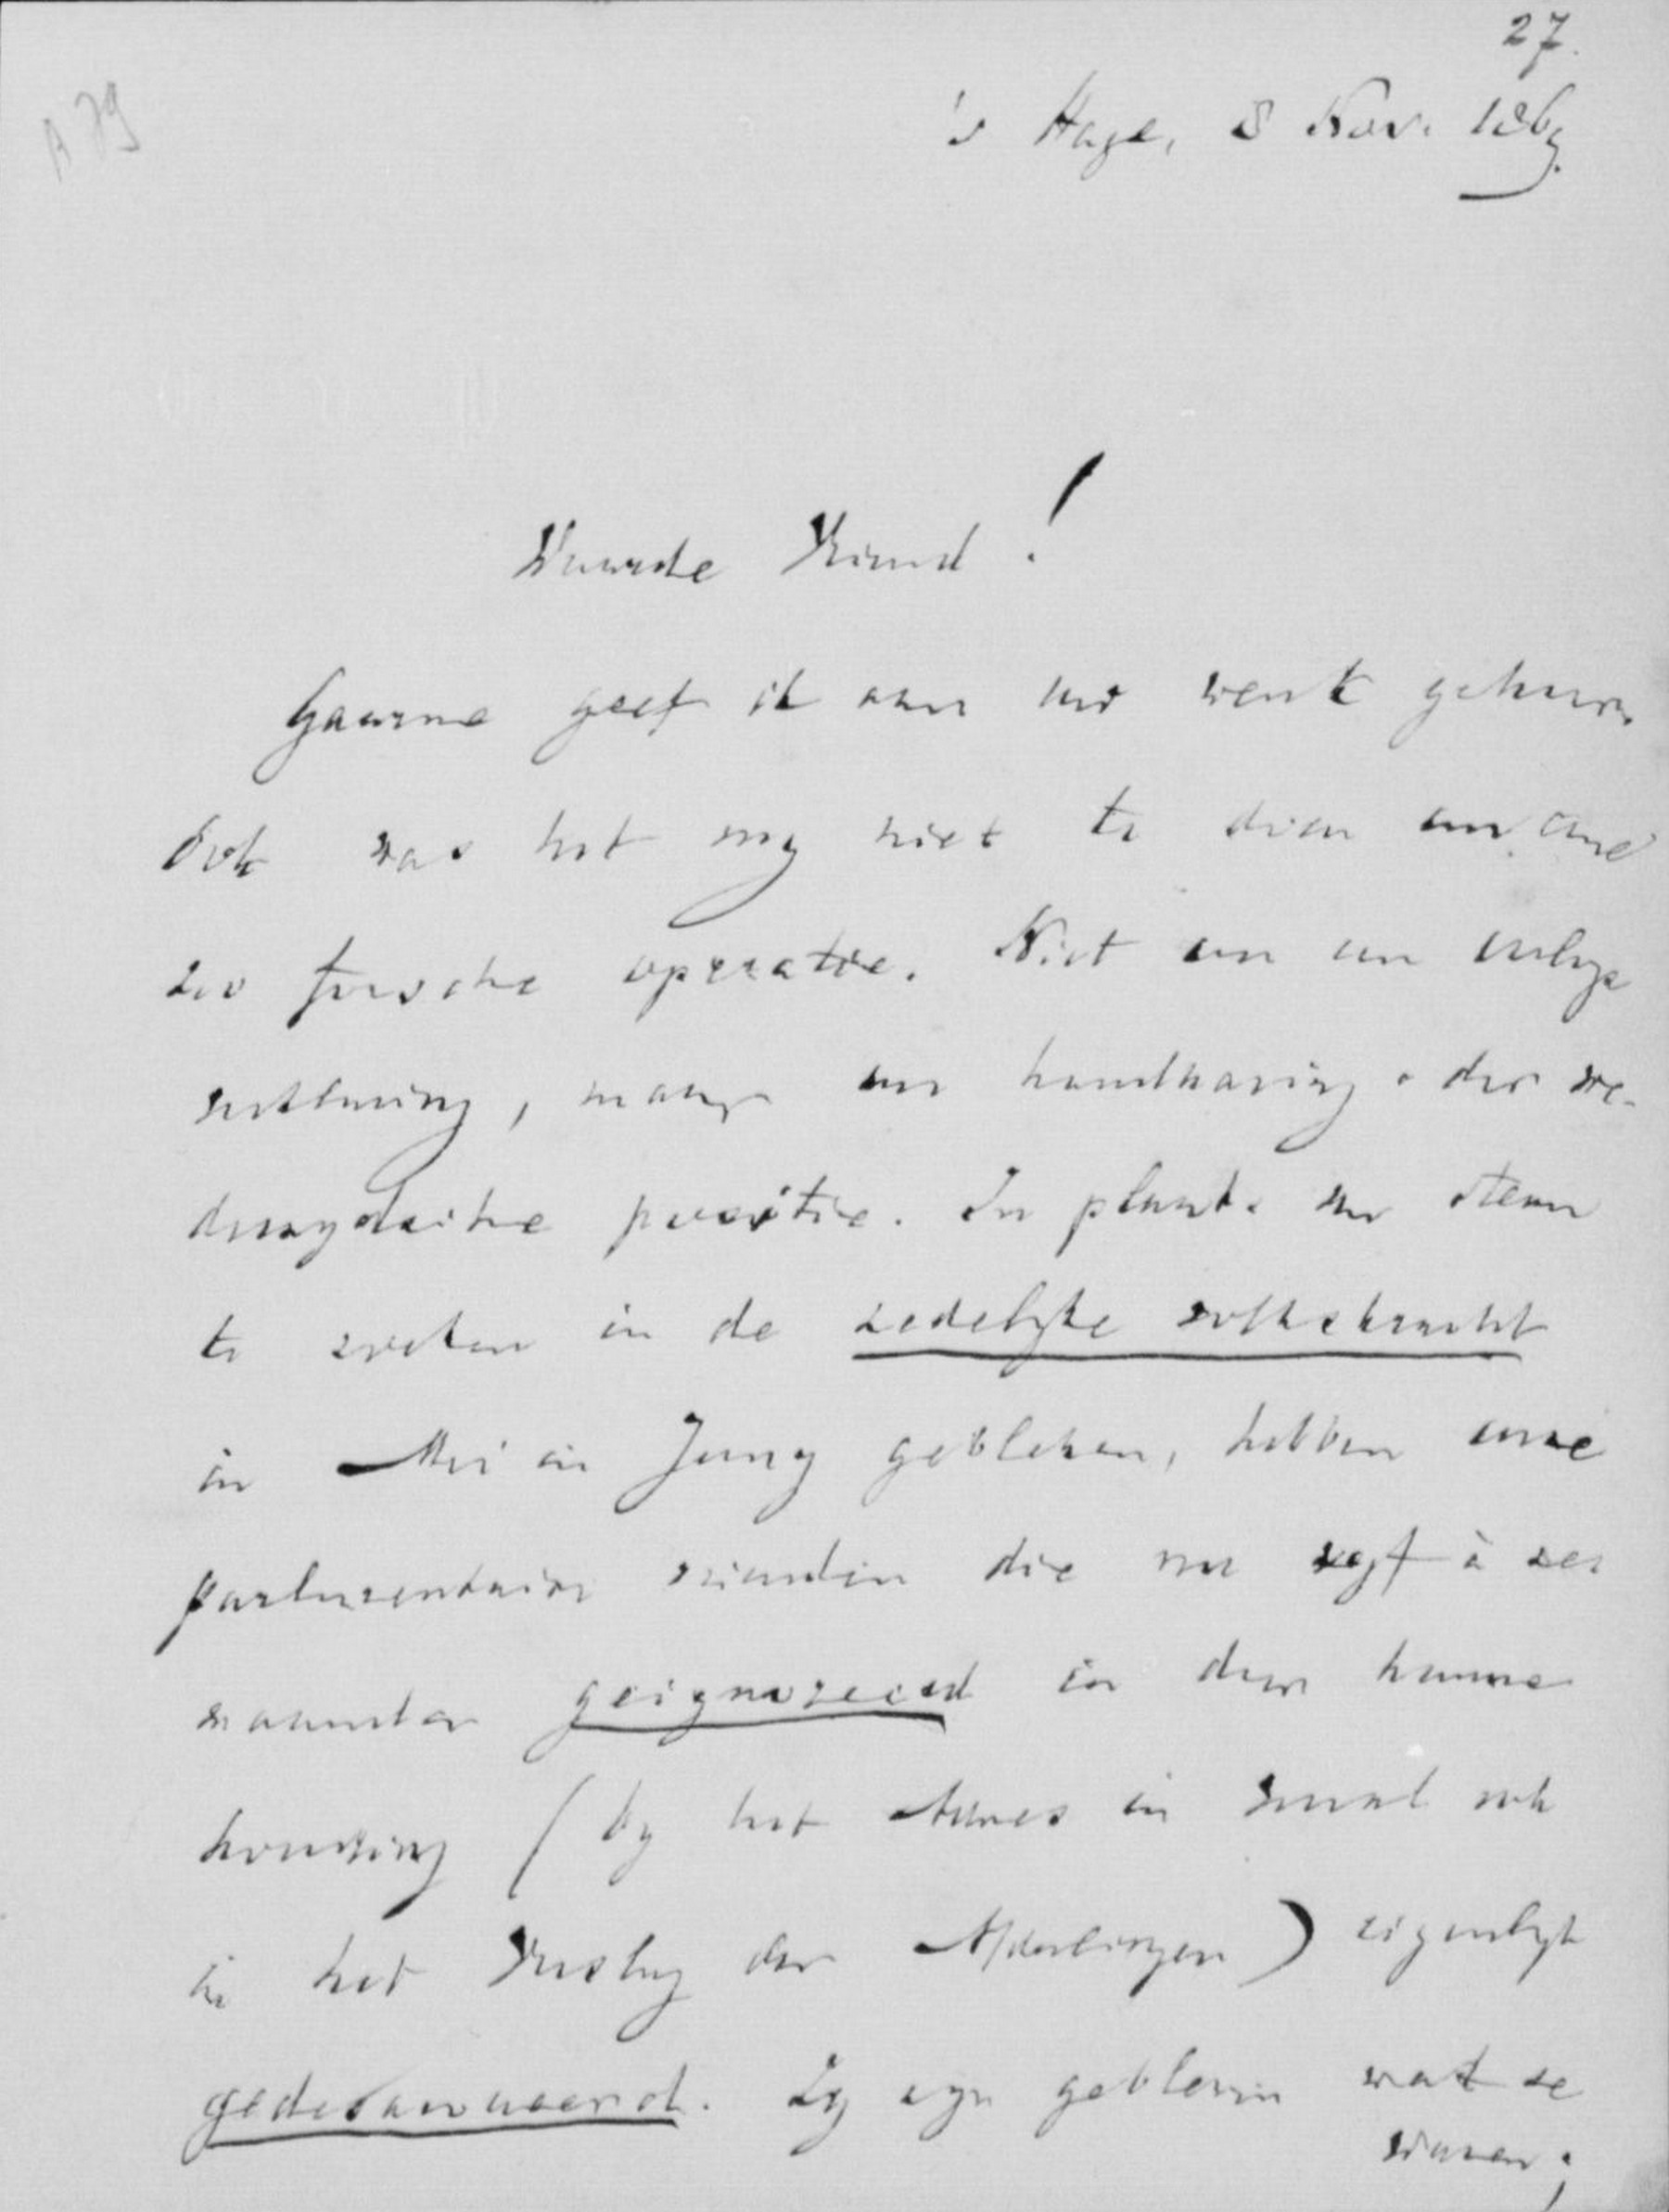 27.
A 79
's Hage, 8 Nov. 1869.
Waarde Vriend!
Gaarne geef ik aan uw wenk gehoor.
Ook was het mij niet te doen om eene
zoo forsche operatie. Niet om een
, maar om handhaving der we-
positie. In plaats van steun
te zoeken in de zedelijke volkskracht
in Mei en Juny gebleken, hebben onze
parlementaire vrienden die nu vijf à zes
maanden geignoreerd en door hunne
houding (by het Adres en vooral ook
in het Verslag der Afdeelingen) eigenlyk
gedesavoueerd. Zy zyn gebleven wat ze
waren;